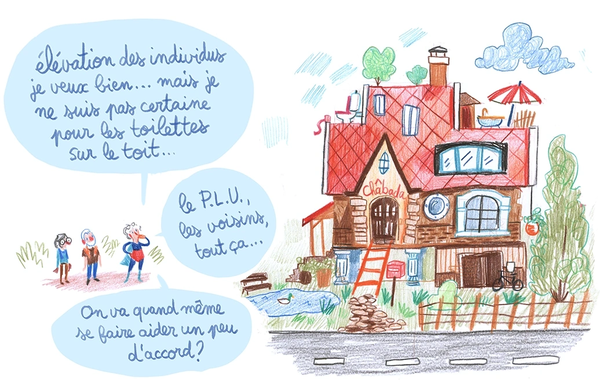 élévation des individus
je veux bien... mais je
ne suis pas certaine
pour les toilettes
sur le toit...
le P.L.U.,
les voisins,
tout ça...
On va quand même
se faire aider un peu
d'accord?
Châbada